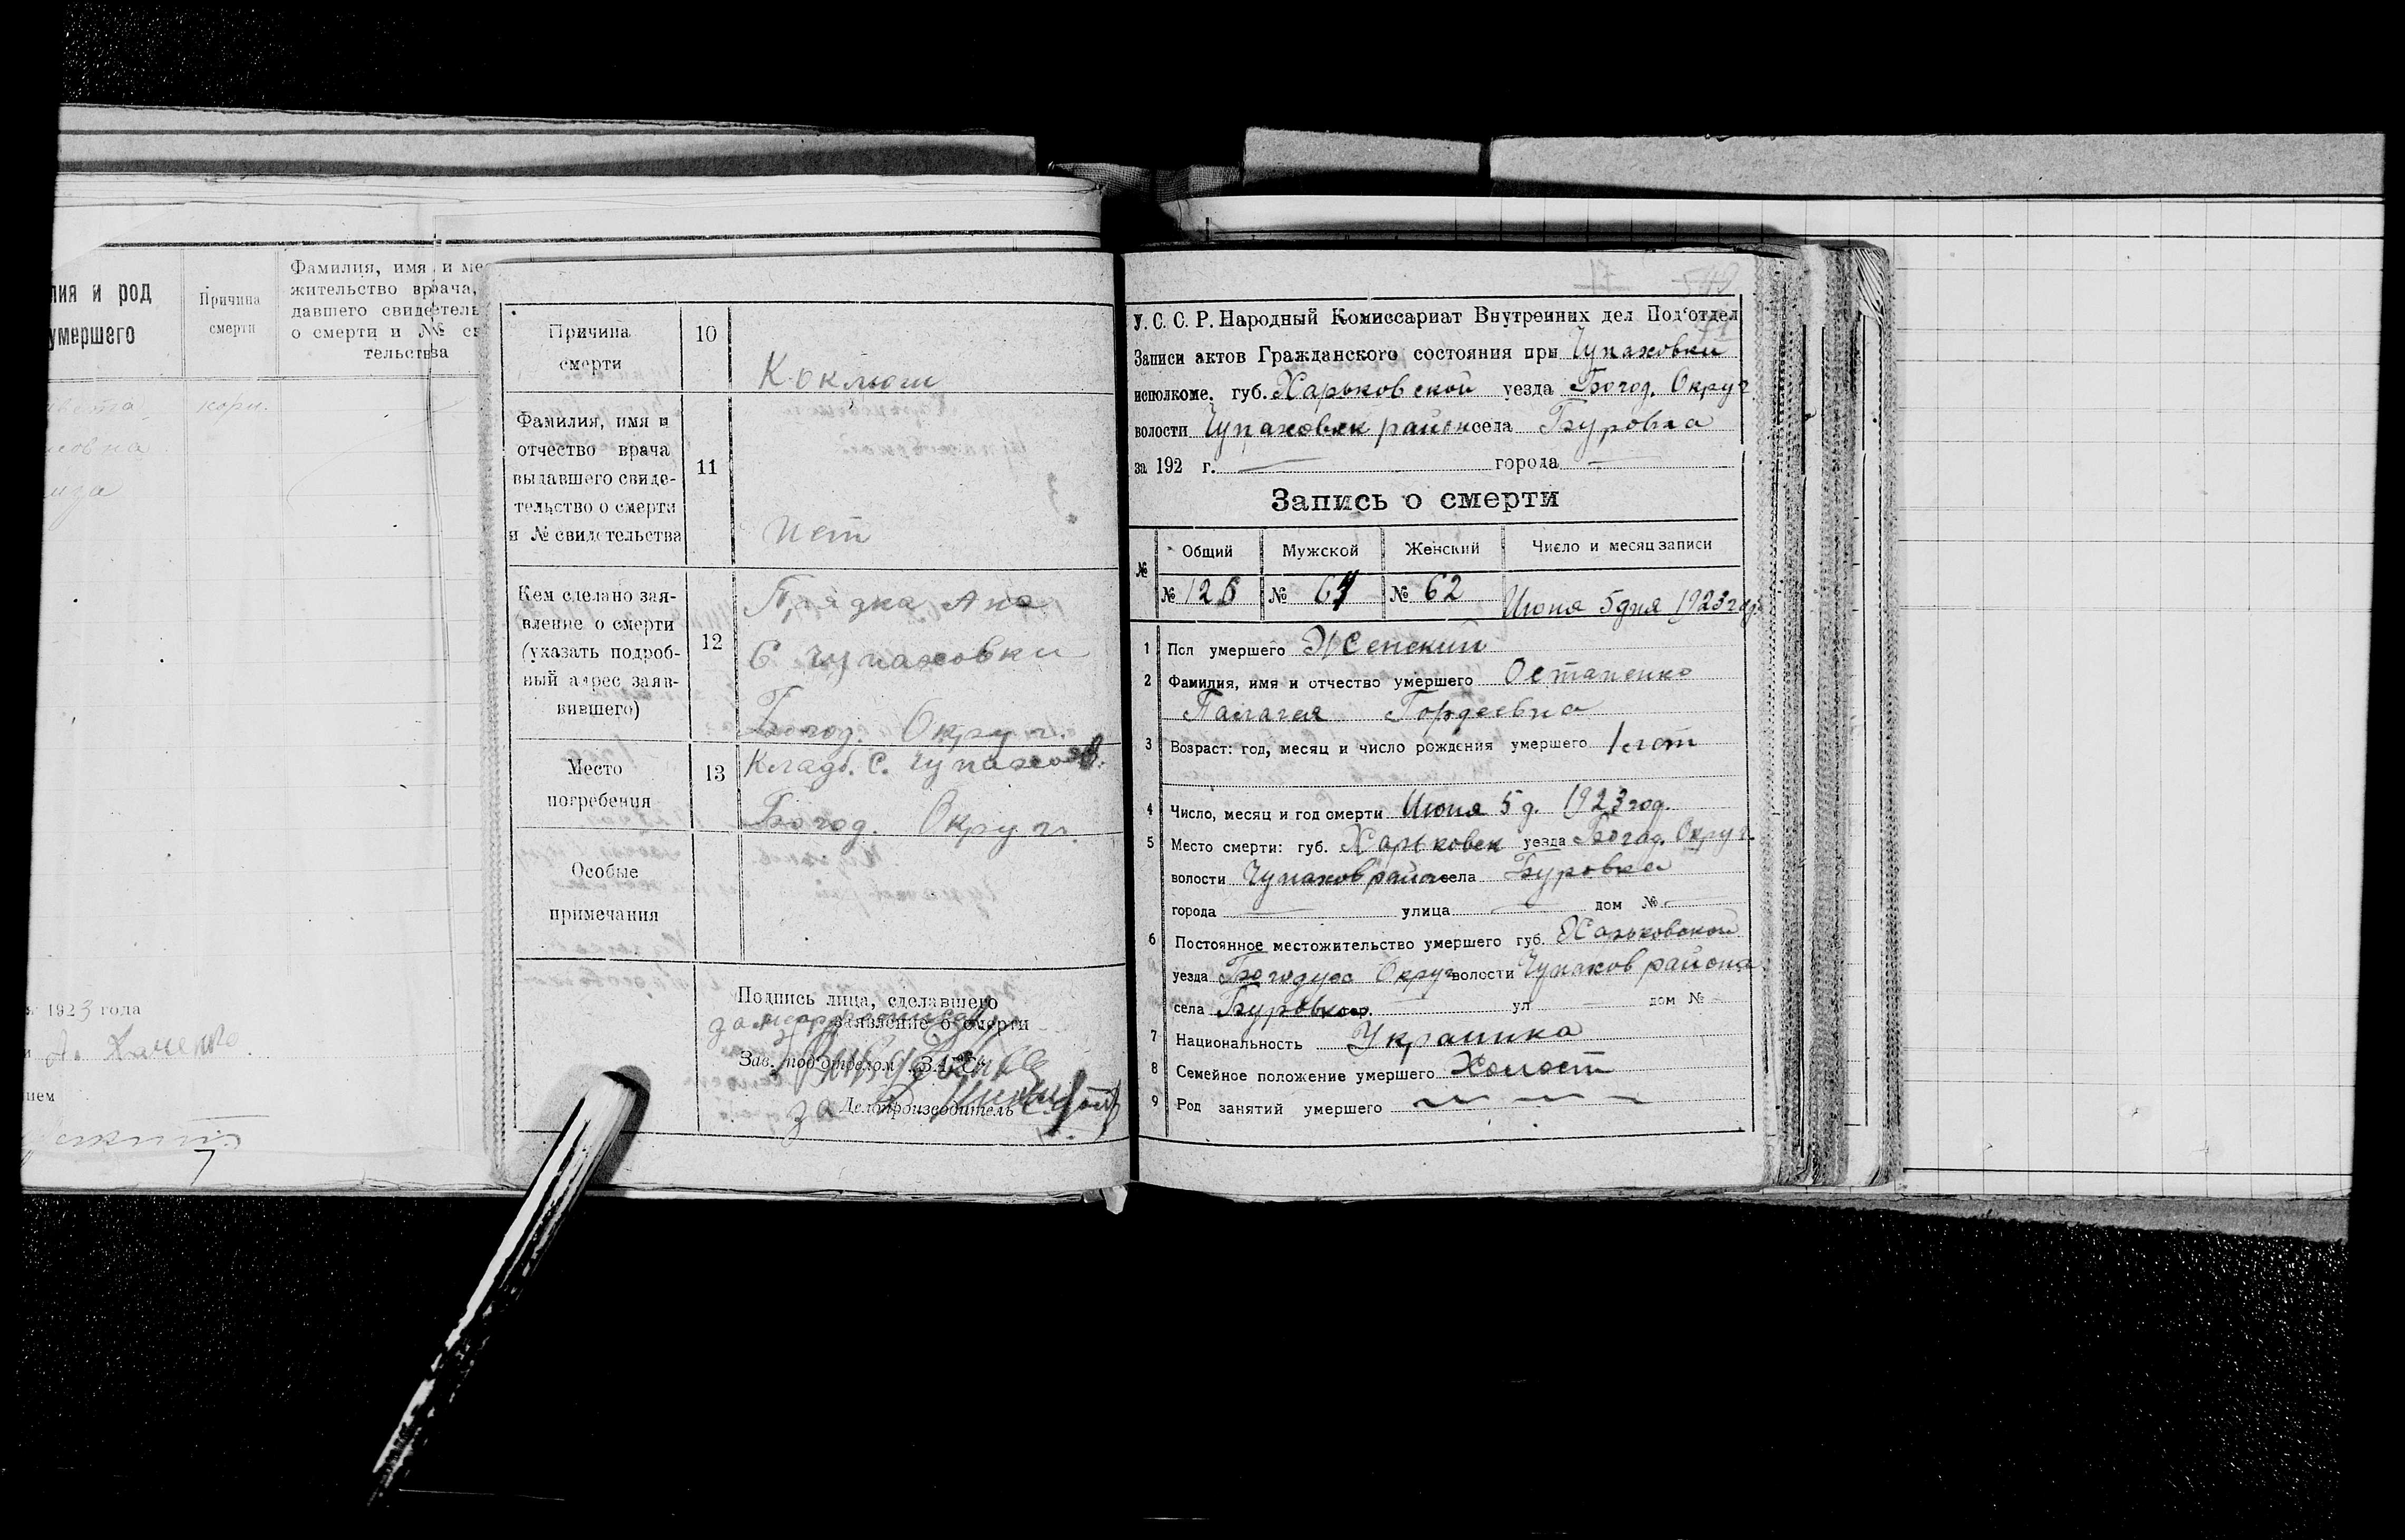 лия и род
умершего
Причина
смерти
Фамилия, имя и ме
жительство врача,
давшего свидетель
о смерти и №№ св
тельства
кори.
1923 года
7
Причина
смерти
10
Коклюш
Фамилия, имя и
отчество врача
выдавшего свиде-
тельство о смерти
и № свидетельства
11
Нет
Кем сделано зая-
вление о смерти
(указать подроб-
ный адрес заяв-
вившего)
12
Прядка Ана
С Чупаховки
Богод. Округ.
Место
погребения
13
Кладб. С. Чупахов.
Богод. Округ.
Особые
примечания
Подпись лица, сделавшего
заявление о смерти
Зав. подотделом ЗАГС
за Делопроизводитель
У. С. С. Р. Народный Комиссариат Внутренних дел Под'отдел
Записи актов Гражданского состояния при Чупаховки
исполкоме. губ. Харьковской уезда Богод. Округ.
волости Чупаховск район села Буровка
за 192 г. города
Запись о смерти
№ Общий Мужской Женский Число и месяц записи
№ 126 № 64 № 62 Июня 5 дня 1923 год.
1 Пол умершего Женский
2 Фамилия, имя и отчество умершего Остапенко
Палагея Гордеевна
3 Возраст: год, месяц и число рождения умершего 1 лет
4 Число, месяц и год смерти Июня 5 д. 1923 год.
5 Место смерти: губ. Харьковск уезда Богод. Округ.
волости Чупахов район села Буровка
города улица дом №
6 Постоянное местожительство умершего губ. Харьковской
уезда Богодухо Округ волости Чупахов района
села Буровка гор. ул дом №
7 Национальность Украинка
8 Семейное положение умершего Холост
9 Род занятий умершего